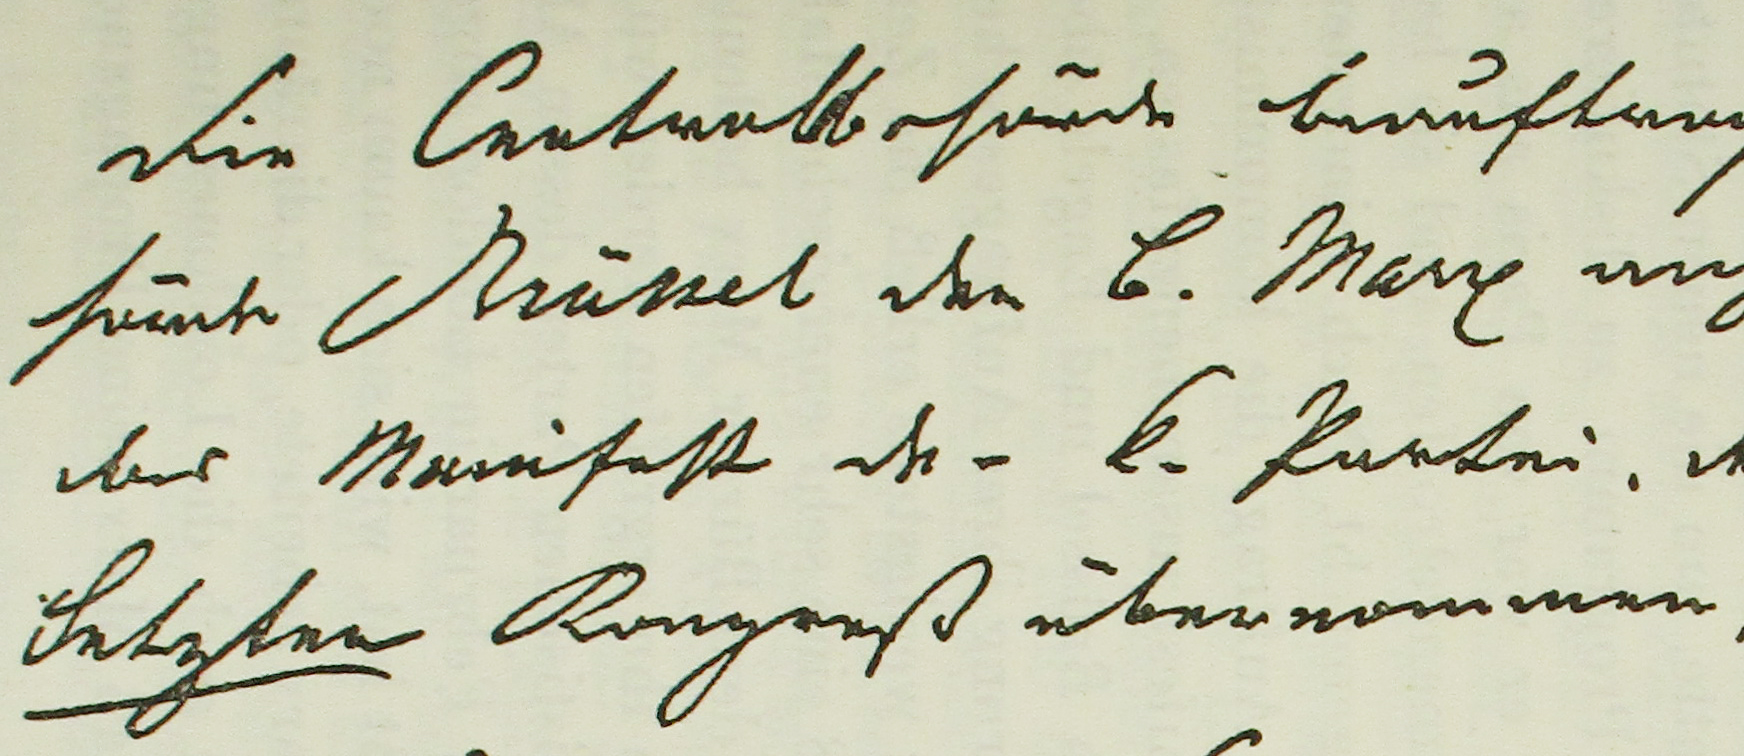 Die Centralbehörde beauftrag
hörde Brüssel dem C. Marx anz
das Manifest der K. Partei, d
letzten Kongreß übernommen,